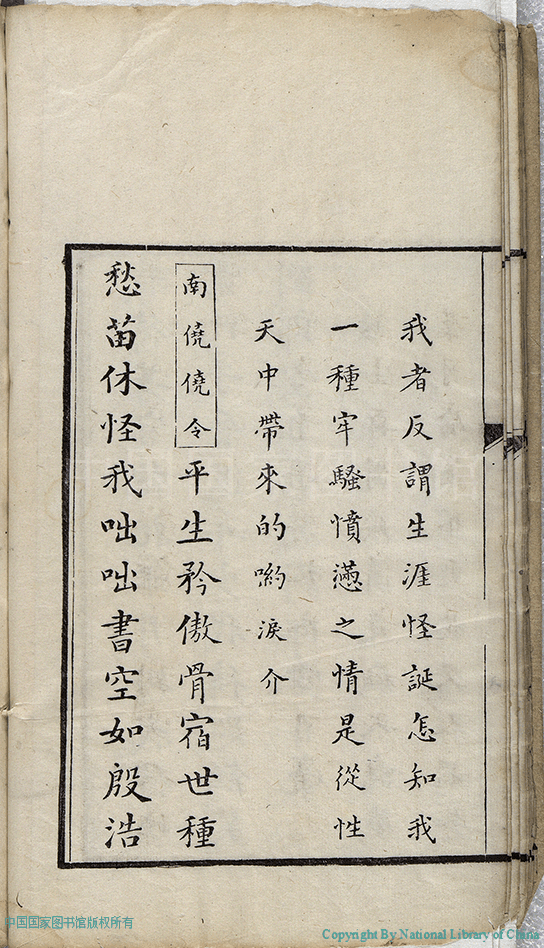 我者反謂生涯怪誕怎知我
一種牢騷憤懣之情是從性
天中帶來的喲淚介
南僥僥令平生矜傲骨宿世種
愁苗休怪我咄咄書空如殷浩
中国国家图书馆版权所有
Copyright By National Library of China